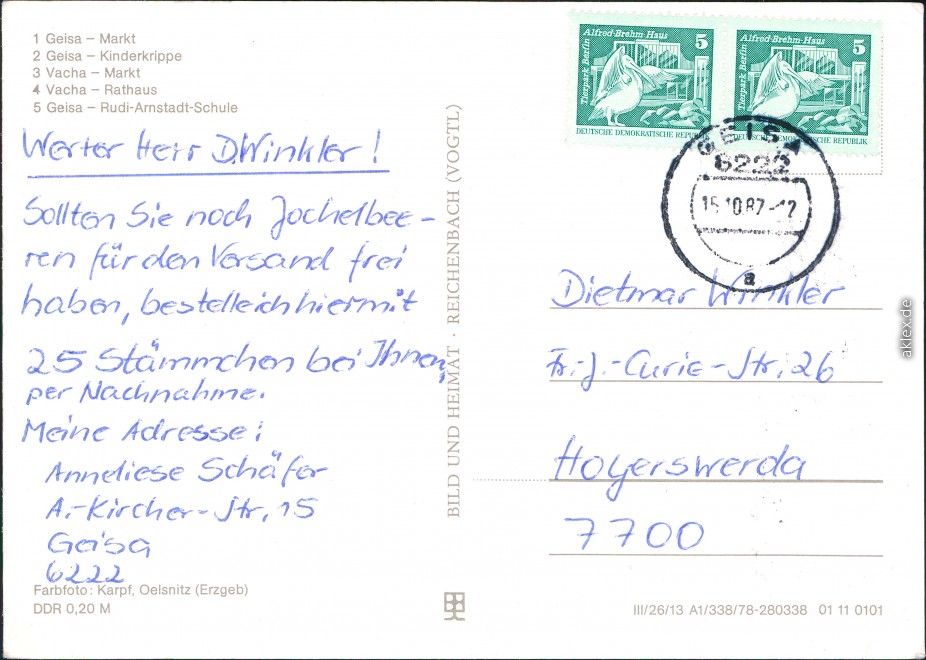 1 Geisa – Markt
2 Geisa – Kinderkrippe
3 Vacha – Markt
4 Vacha – Rathaus
5 Geisa – Rudi-Arnstadt-Schule
Werter Herr D.Winkler!
Sollten Sie noch Jochelbee-
ren für den Versand frei
haben, bestelle ich hiermit
25 Stämmchen bei Ihnen,
per Nachnahme.
Meine Adresse:
Anneliese Schäfer
A.-Kircher-Str. 15
Geisa
6222
Farbfoto: Karpf, Oelsnitz (Erzgeb)
DDR 0,20 M
BILD UND HEIMAT · REICHENBACH (VOGTL)
Tierpark Berlin
Alfred-Brehm-Haus
5
DEUTSCHE DEMOKRATISCHE REPUBLIK
Tierpark Berlin
Alfred-Brehm-Haus
5
DEUTSCHE DEMOKRATISCHE REPUBLIK
GEISA
6222
15.10.87-12
a
Dietmar Winkler
Fr.-J.-Curie-Str. 26
Hoyerswerda
7700
III/26/13 A1/338/78-280338 01 11 0101
aklex.de